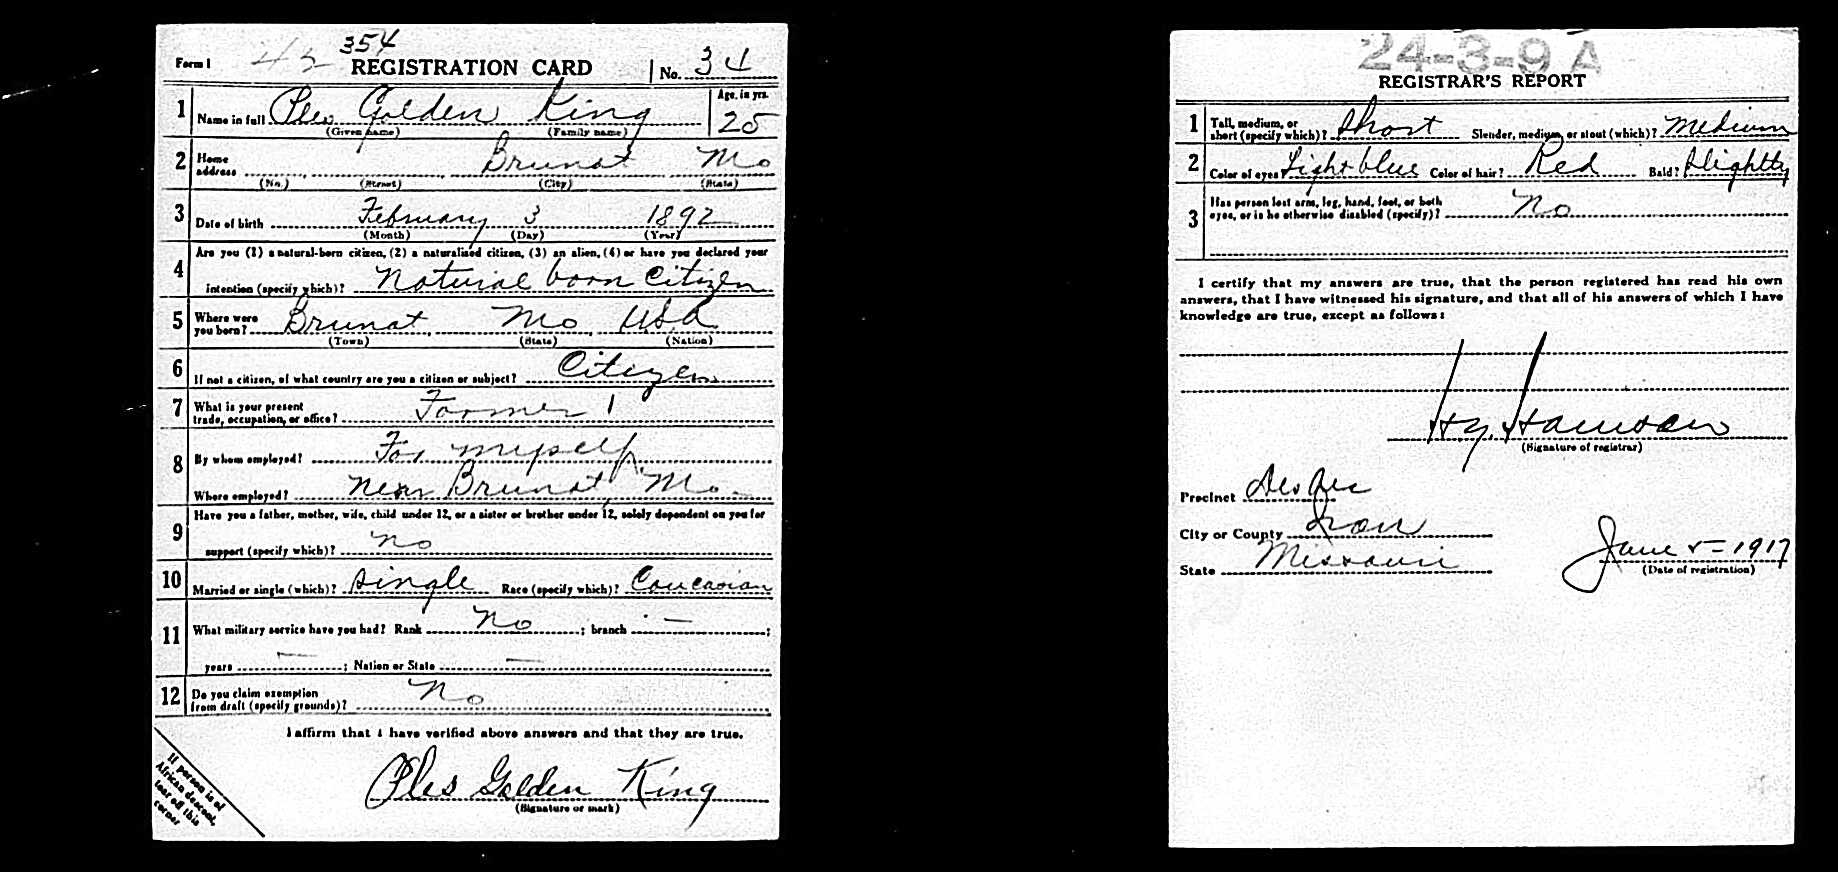 354
Form 1 REGISTRATION CARD No. 34
1 Name in full Ples Golden King Age, in yrs. 25
(Given name) (Family name)
2 Home address Brunot Mo
(No.) (Street) (City) (State)
3 Date of birth February 3 1892
(Month) (Day) (Year)
4 Are you (1) a natural-born citizen, (2) a naturalized citizen, (3) an alien, (4) or have you declared your
intention (specify which)? Natural born Citizen
5 Where were you born? Brunot Mo USA
(Town) (State) (Nation)
6 If not a citizen, of what country are you a citizen or subject? Citizen
7 What is your present trade, occupation, or office? Farmer 1
8 By whom employed? For myself
Where employed? near Brunot, Mo.
9 Have you a father, mother, wife, child under 12, or a sister or brother under 12, solely dependent on you for
support (specify which)? no
10 Married or single (which)? single Race (specify which)? Caucasian
11 What military service have you had? Rank No ; branch — ;
years — ; Nation or State —
12 Do you claim exemption from draft (specify grounds)? No
I affirm that I have verified above answers and that they are true.
Ples Golden King
(Signature or mark)
If person is of
African descent,
tear off this
corner
24-3-9 A
REGISTRAR'S REPORT
1 Tall, medium, or short (specify which)? short Slender, medium, or stout (which)? medium
2 Color of eyes Light blue Color of hair? Red Bald? slightly
3 Has person lost arm, leg, hand, foot, or both eyes, or is he otherwise disabled (specify)? No
I certify that my answers are true, that the person registered has read his own
answers, that I have witnessed his signature, and that all of his answers of which I have
knowledge are true, except as follows:
Hy.
(Signature of registrar)
Precinct Des Arc
City or County Iron
State Missouri
June 5-1917
(Date of registration)